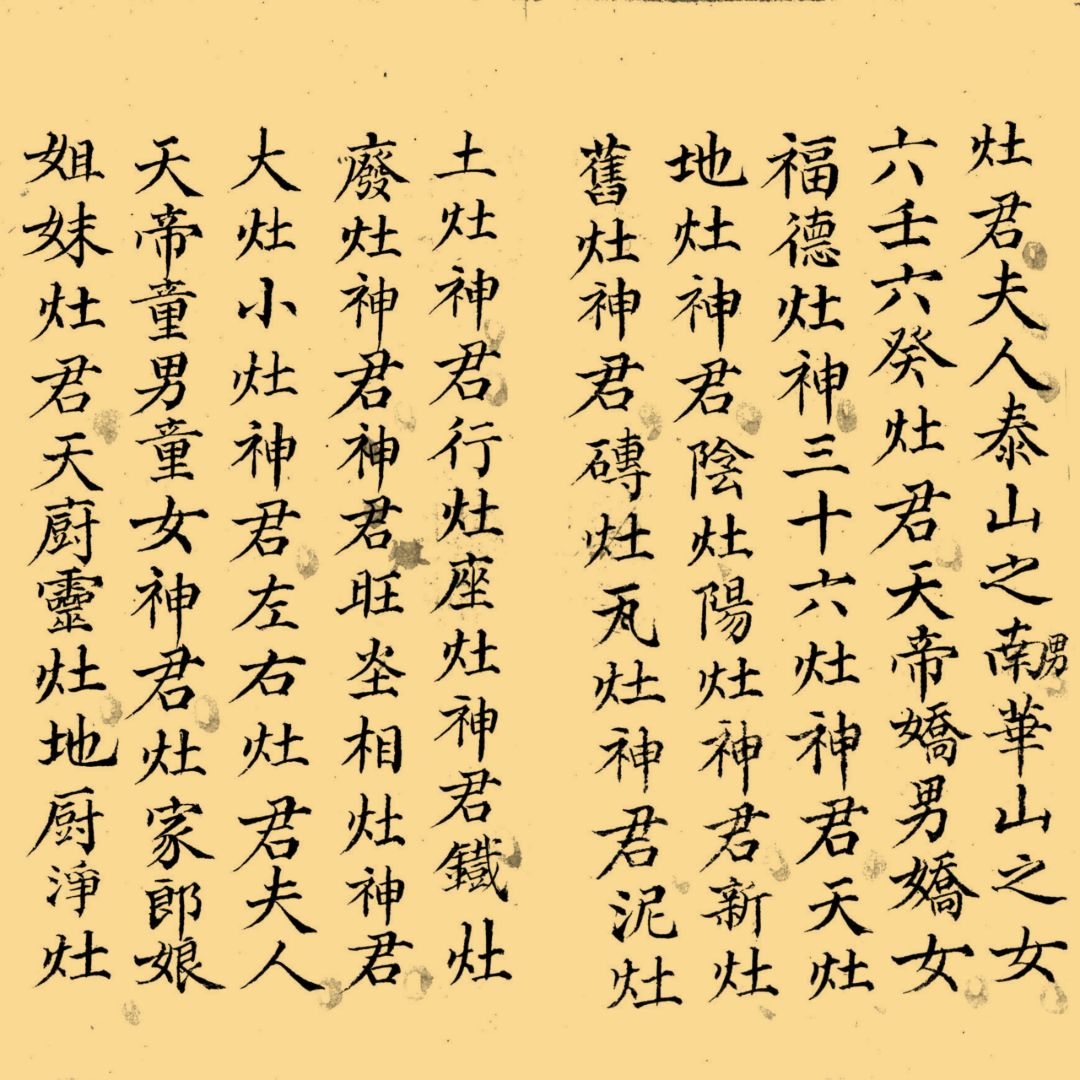 灶君夫人泰山之南男華山之女
六壬六癸灶君天帝嬌男嬌女
福德灶神三十六灶神君天灶
地灶神君陰灶陽灶神君新灶
舊灶神君磚灶瓦灶神君泥灶
土灶神君行灶座灶神君鐵灶
廢灶神君神君旺坐相灶神君
大灶小灶神君左右灶君夫人
天帝童男童女神君灶家郎娘
姐妹灶君天廚靈灶地厨淨灶